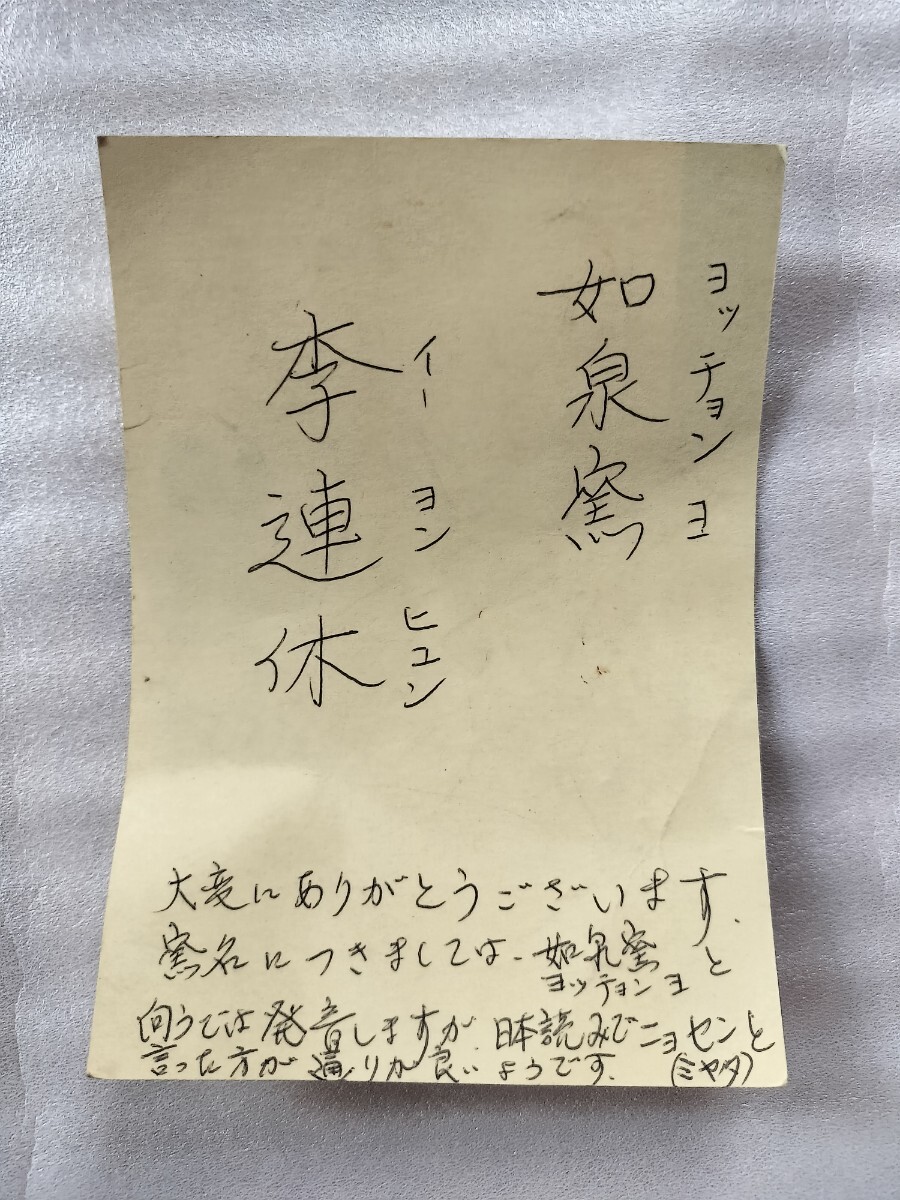 如泉窯
ヨッチョンヨ
李連休
イーヨンヒュン
大変にありがとうございます.
窯名につきましては、如泉窯と
ヨッチョンヨ
向うでは発音しますが、日本読みでニョセンと
言った方が通りが良いようです.
(ミヤタ)